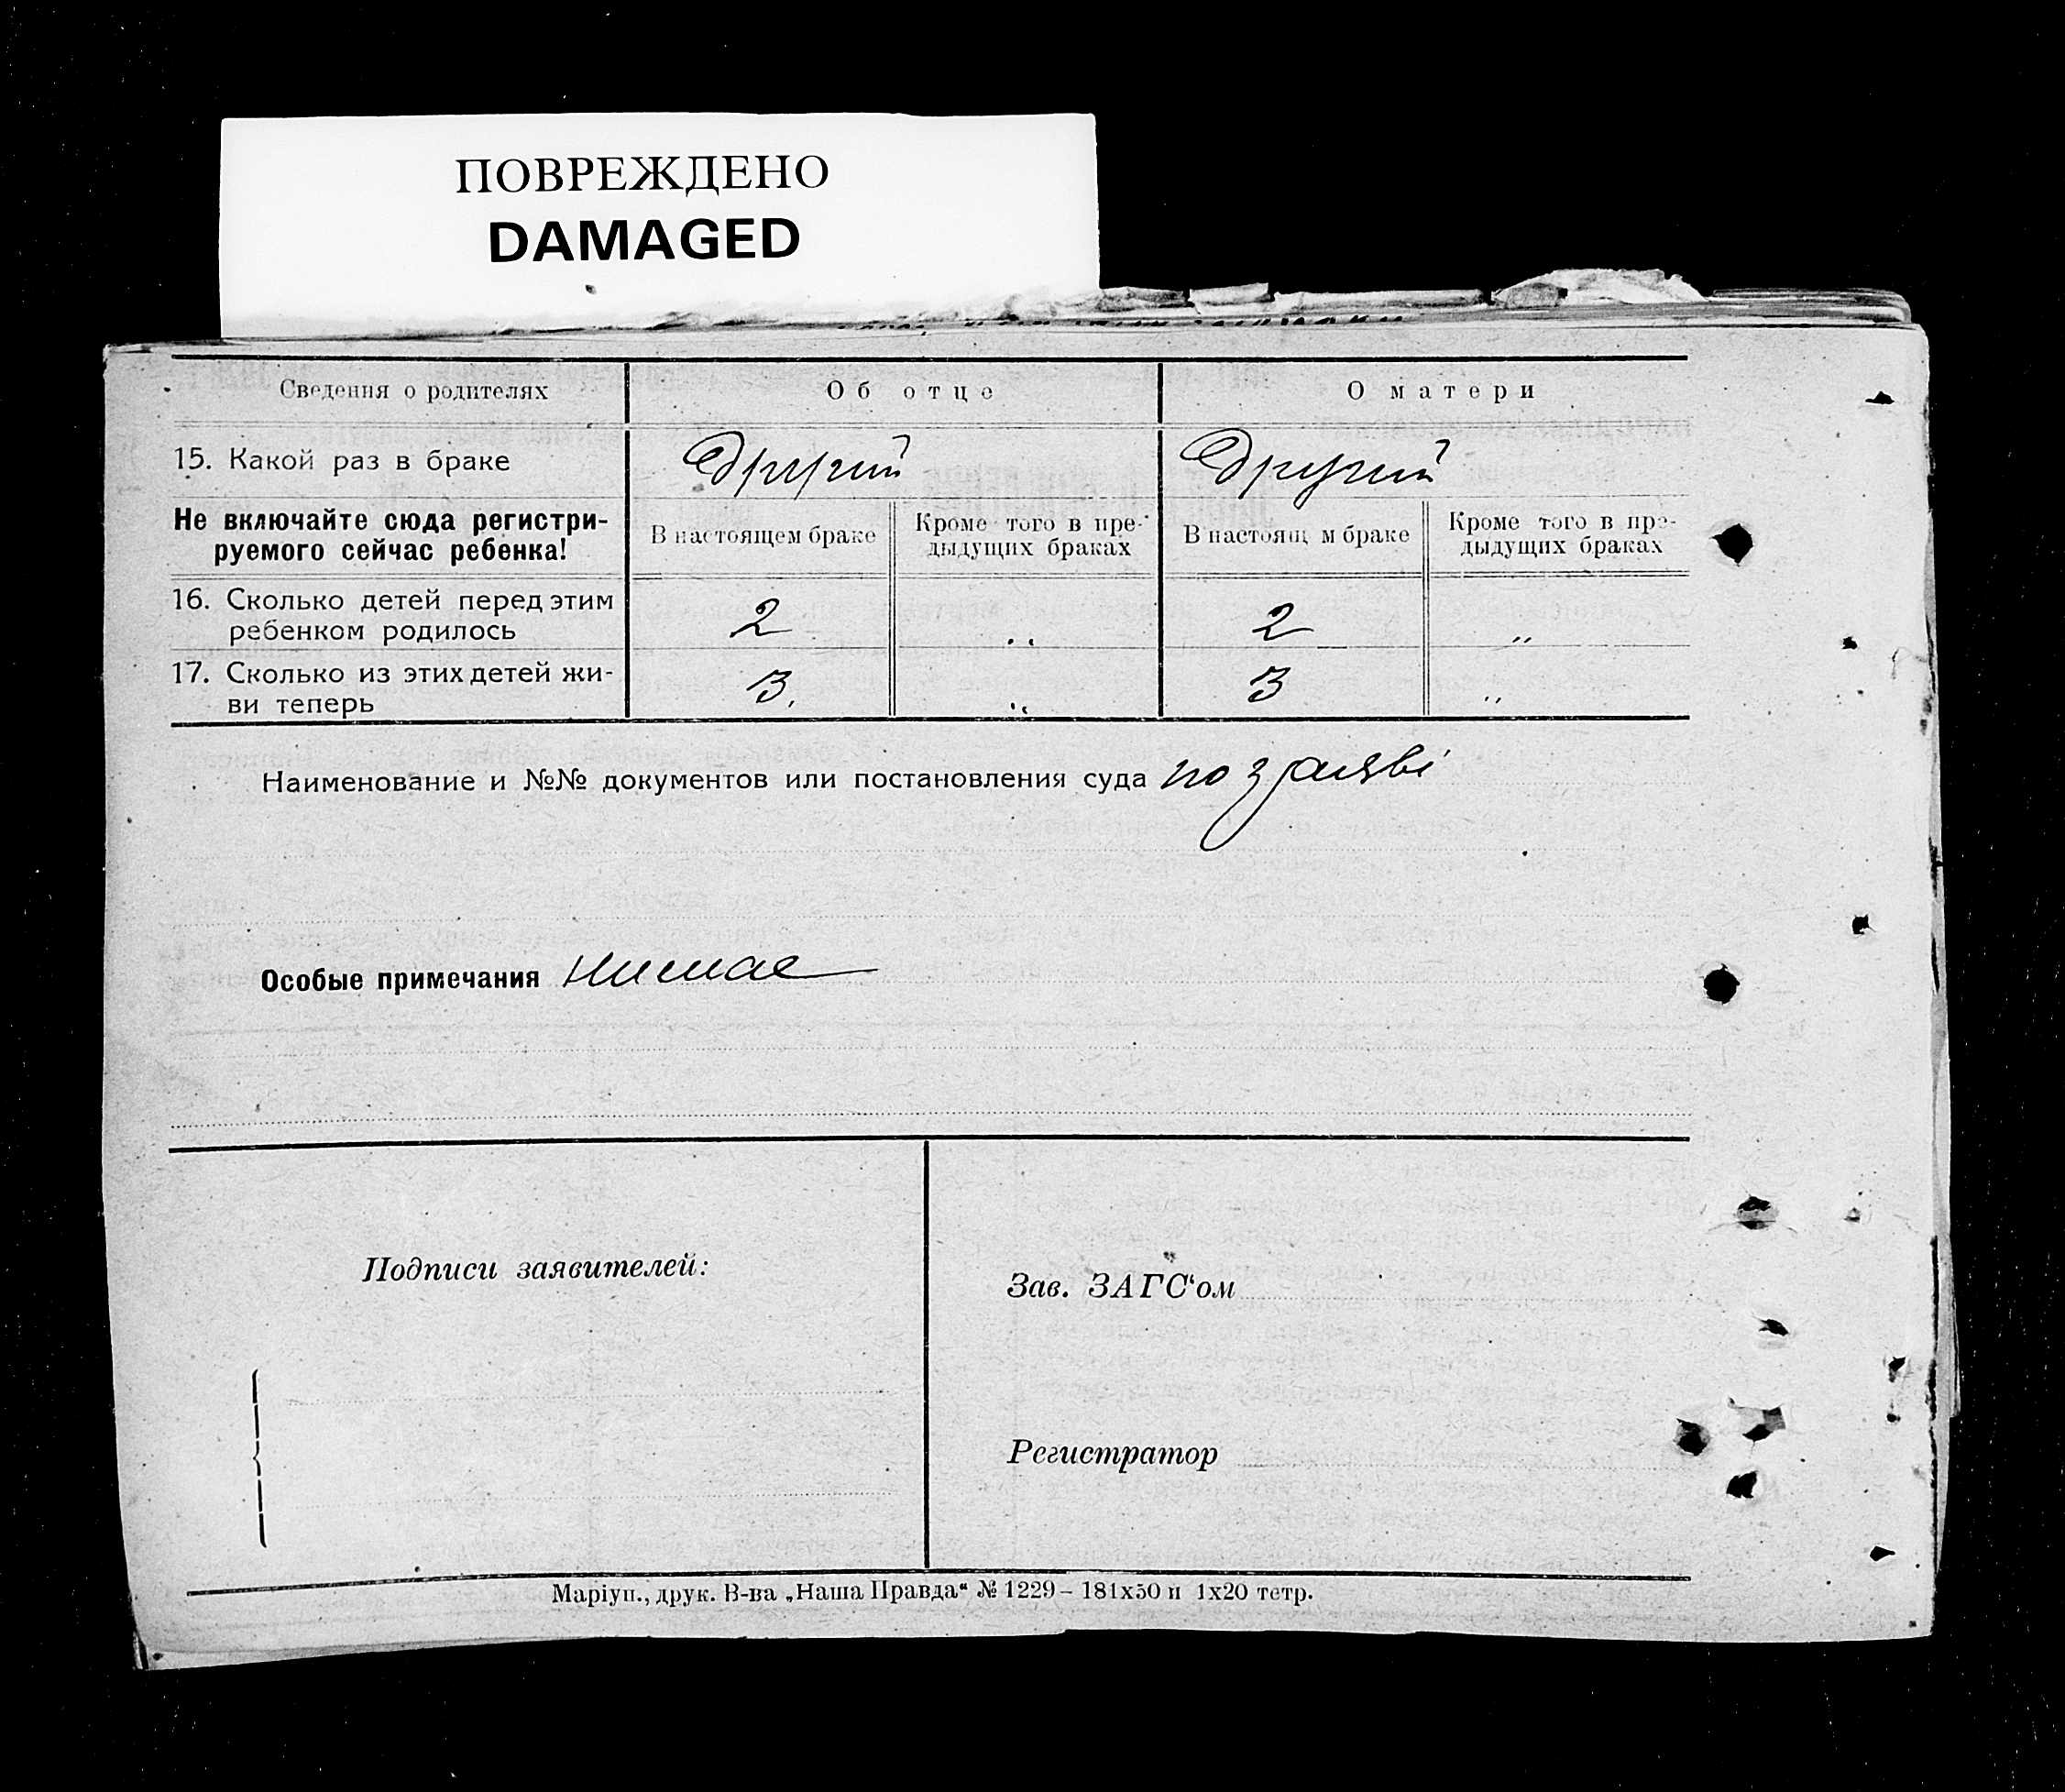 ПОВРЕЖДЕНО
DAMAGED
Сведения о родителях
Об отце
О матери
15. Какой раз в браке
другий
другий
Не включайте сюда регистри-
руемого сейчас ребенка!
В настоящем браке
Кроме того в пре-
дыдущих браках
В настоящ м браке
Кроме того в пре-
дыдущих браках
16. Сколько детей перед этим
ребенком родилось
2
„
2
„
17. Сколько из этих детей жи-
ви теперь
3.
„
3
„
Наименование и №№ документов или постановления суда по заяві
Особые примечания нимае
Подписи заявителей:
Зав. ЗАГС‘ом
Регистратор
Маріуп., друк. В-ва „Наша Правда“ № 1229 – 181х50 и 1х20 тетр.